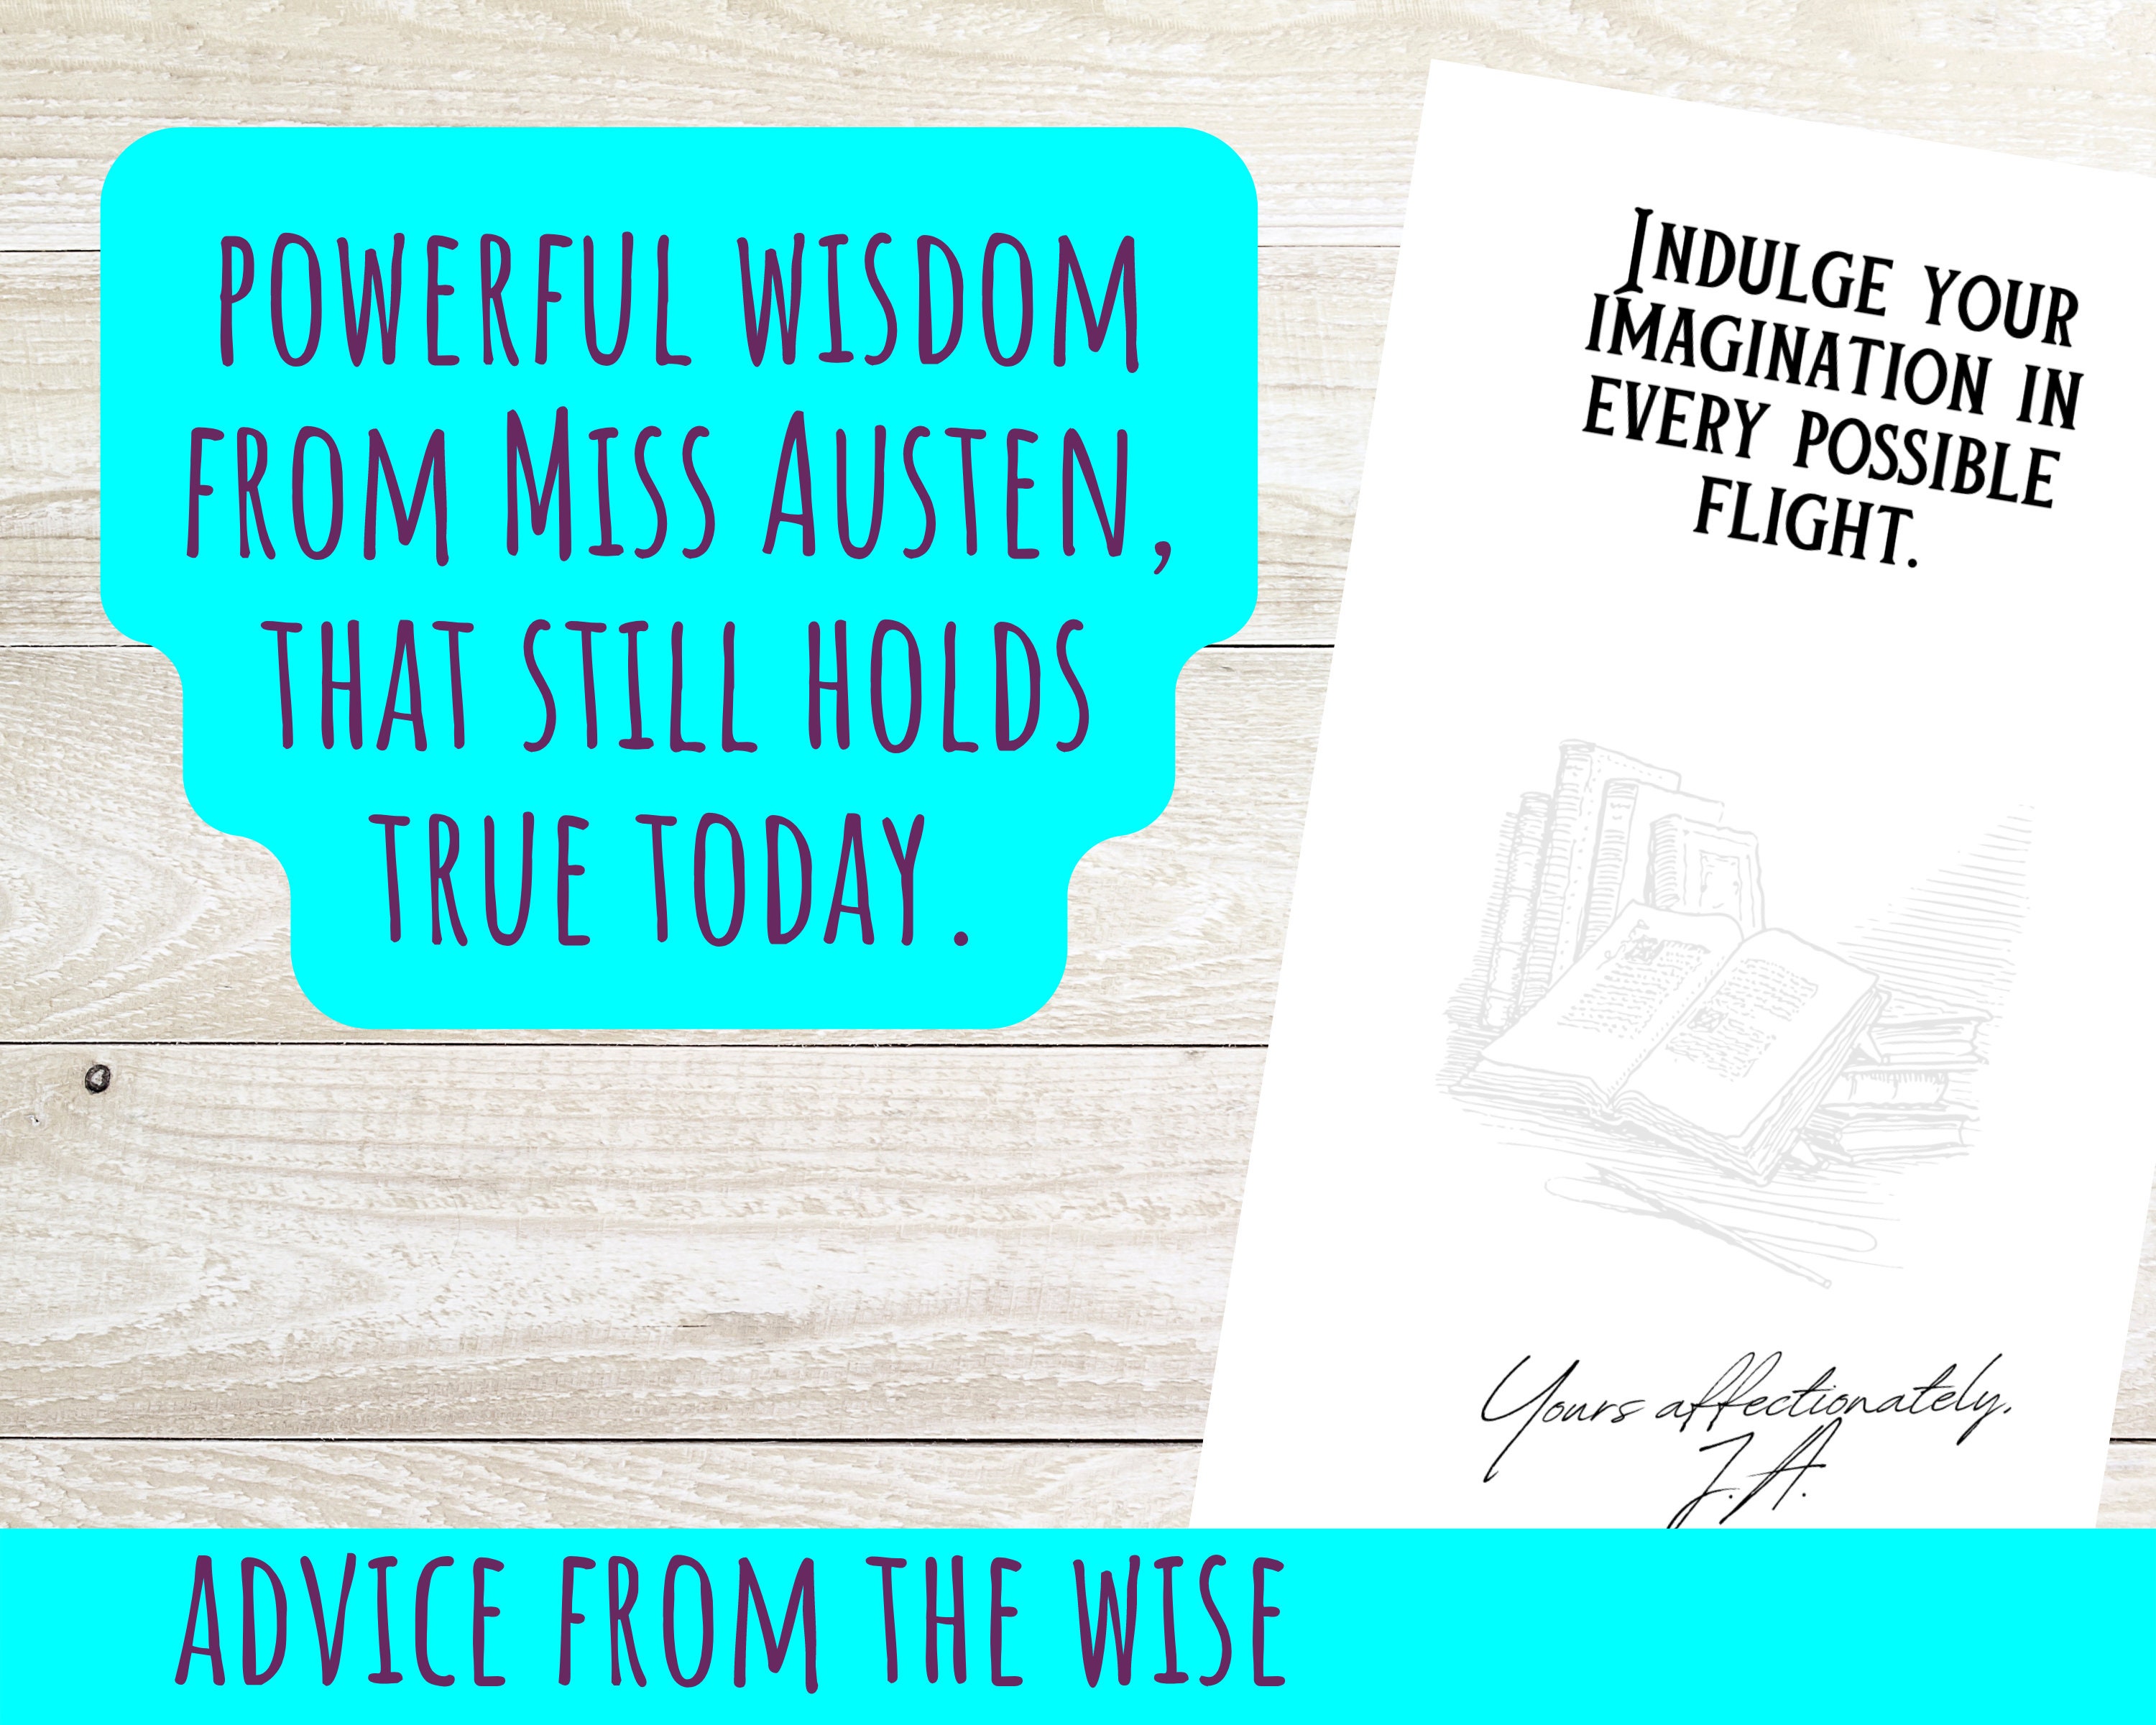 POWERFUL WISDOM
FROM MISS AUSTEN,
THAT STILL HOLDS
TRUE TODAY.
INDULGE YOUR
IMAGINATION IN
EVERY POSSIBLE
FLIGHT.
Yours affectionately,
J.A.
ADVICE FROM THE WISE